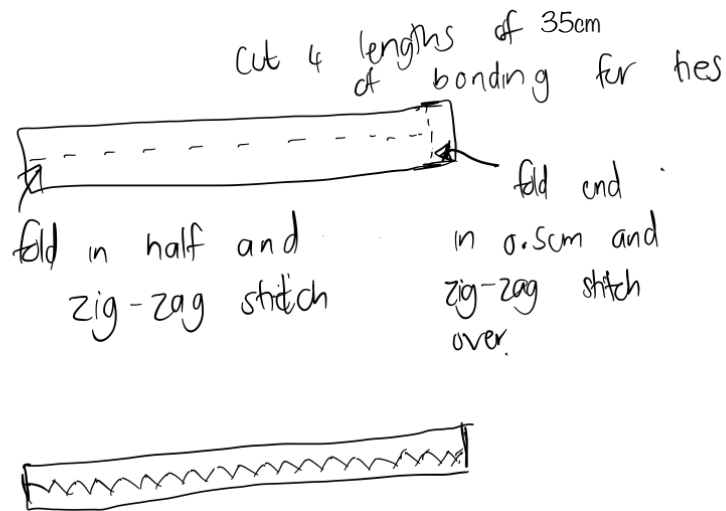 Cut 4 lengths of 35cm
of bonding for ties
fold in half and
zig-zag stitch
fold end
in 0.5cm and
zig-zag stitch
over.